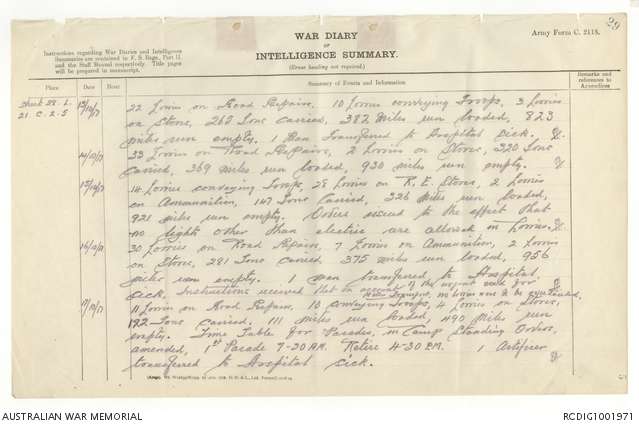 29
WAR DIARY
or
INTELLIGENCE SUMMARY.
(Erase heading not required.)
Army Form C. 2118.
Instructions regarding War Diaries and Intelligence
Summaries are contained in F. S. Regs., Part II.
and the Staff Manual respectively. Title pages
will be prepared in manuscript.
Place
Date
Hour
Summary of Events and Information
Remarks and
references to
Appendices
Sheet 28. L. 13/10/17 22 Lorries on Road Repairs. 10 Lorries conveying Troops, 3 Lorries
21 C. 2. 5 on Stone, 262 Tons carried, 382 Miles run loaded, 823
miles run empty. 1 Man transferred to Hospital sick.
14/10/17 33 Lorries on Road Repairs, 2 Lorries on Stores, 320 Tons
carried, 369 miles run loaded, 930 miles run empty.
15/10/17 14 Lorries conveying Troops, 28 Lorries on R.E. Stores, 2 Lorries
on Ammunition, 147 Tons carried, 326 miles run loaded,
921 miles run empty. Orders issued to the effect that
no lights other than electric are allowed in Lorries.
16/10/17 30 Lorries on Road Repair, 7 Lorries on Ammunition, 2 Lorries
on Stone, 281 Tons carried, 375 miles run loaded, 956
miles run empty. 1 man transferred to Hospital
sick. Instructions received that on account of the urgent need for
Motor Transport, no lorries are to be
17/10/17 11 Lorries on Road Repairs, 13 conveying Troops, 4 Lorries on Stores,
182 Tons carried, 111 miles run loaded, 490 miles run
empty. Time Table for Parades, in Camp Standing Orders,
amended, 1st Parade 7-30 AM. Retire 4-30 P.M. 1 Artificer
transferred to Hospital sick.
AUSTRALIAN WAR MEMORIAL
RCDIG1001971